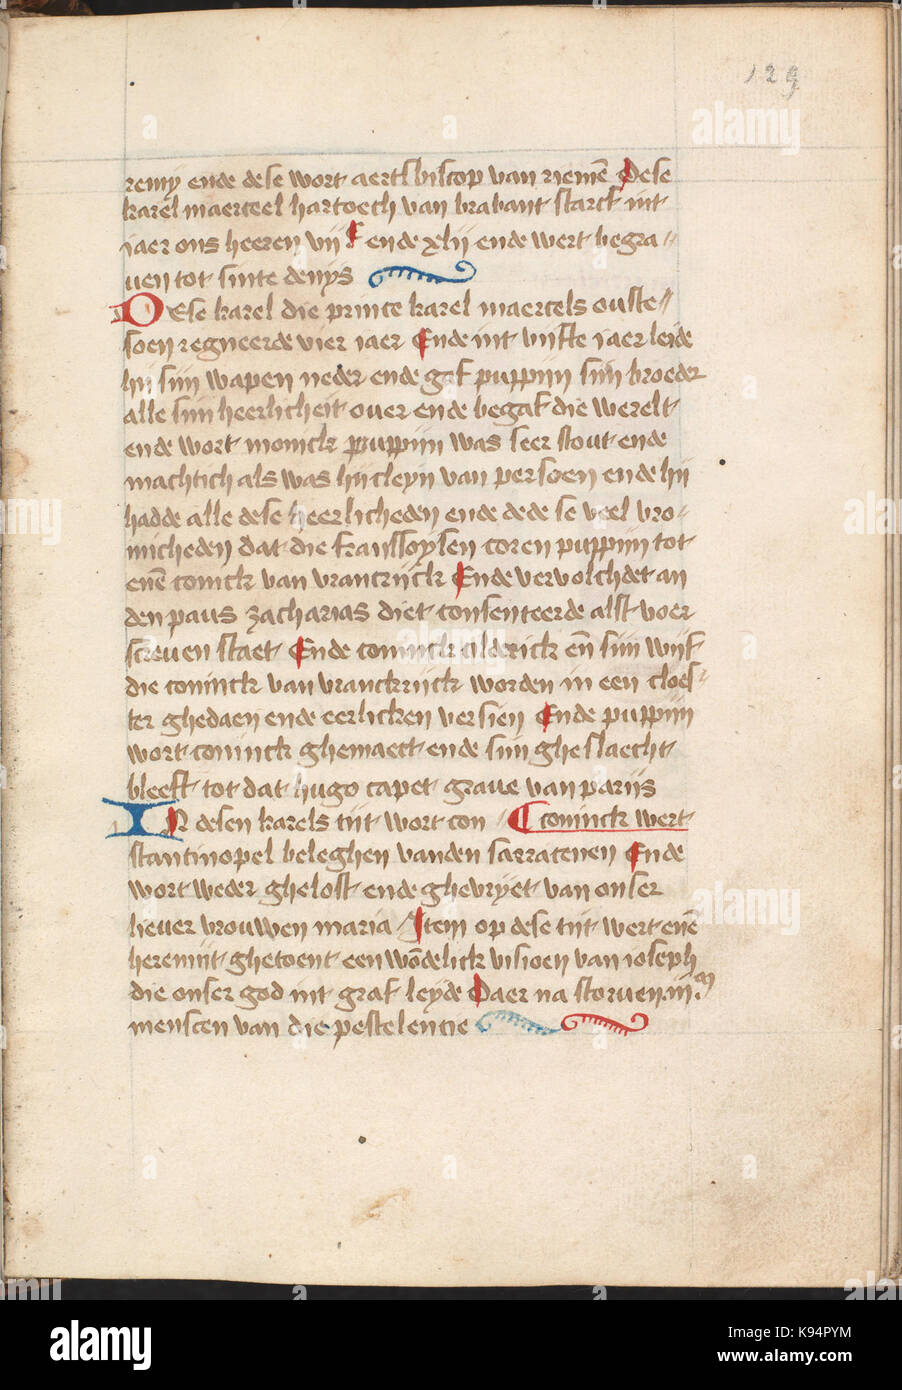 129
remij ende dese wort aertsbiscop van riemē Dese
karel maerteel hartoech van brabant starck int
iaer ons heeren vijᶜ ende xlij ende wert begra〃
uen tot sinte denijs
DEse karel die prince karel maertels ouste〃
soen regneerde vier iaer Ende int vijfte iaer leide
hij sijn wapen neder ende gaf puppijn sijn broeder
alle sijn heerlicheit ouer ende begaf die werelt
ende wort monick puppijn was seer stout ende
machtich als was hij cleyn van persoen ende hij
hadde alle dese heerlicheden ende dede se veel vro〃
micheden dat die franssoysen coren puppijn tot
enē coinck van vrancrijck Ende vervolchdet an
den paus zacharias diet consenteerde alst voer
screuen staet Ende coninck alderick eñ sijn wijf
die coninck van vranckrijck worden in een cloes〃
ter ghedaen ende eerlicken versien Ende puppijn
wort coninck ghemaect ende sijn gheslaecht
bleeft tot dat hugo capet graue van parijs
IN desen karels tijt wort con〃 coninck wert
stantinopel beleghen vanden sarratenen Ende
wort weder ghelost ende ghevryet van onser
lieuer vrouwen maria Item op dese tijt wert enē
heremijt ghetoent een wōdelick visioen van ioseph
die onser god int graf leyde Daer na storuen iijᵐ
menscen van die pestelencie
alamy
a
K94PYM
www.alamy.com